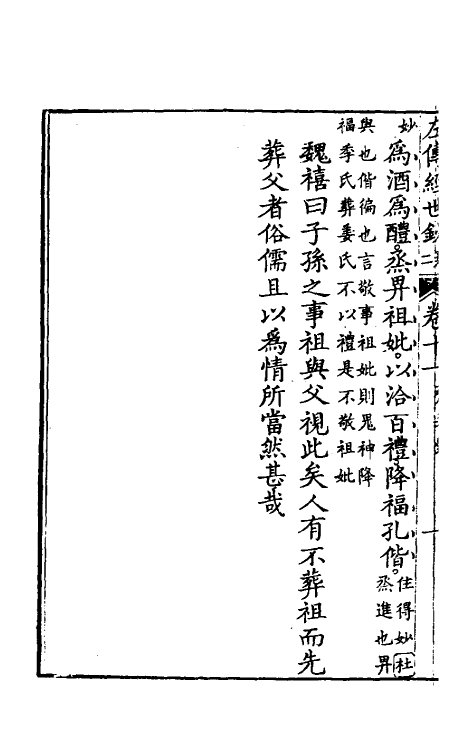 左傳經世鈔二
卷十一
一
妙
爲酒爲醴。烝畀祖妣。以洽百禮。降福孔偕。
住得妙
杜
烝進也畀
與也偕徧也言敬事祖妣則鬼神降
福季氏葬姜氏不以禮是不敬祖妣
魏禧曰子孫之事祖與父視此矣人有不葬祖而先
葬父者俗儒且以爲情所當然甚哉